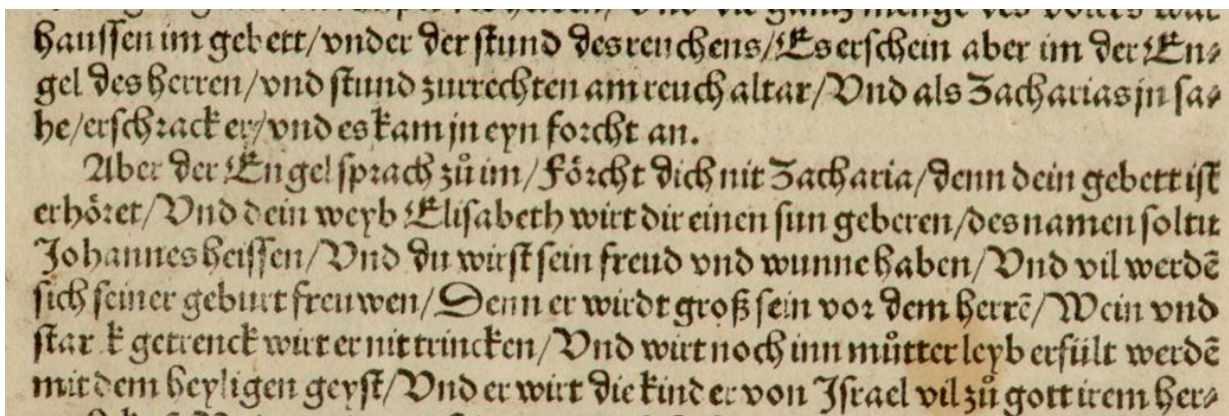 haussen im gebett/vnder der stund des reuchens/Es erschein aber im der En⸗
gel des herren/vnd stund zur rechten am reuch altar/Vnd als Zacharias jn sa⸗
he/erschrack er/vnd es kam jn eyn forcht an.
Aber der Engel sprach zů im/Förcht dich nit Zacharia/denn dein gebett ist
erhöret/Vnd dein weyb Elisabeth wirt dir einen sun geberen/des namen soltu
Johannes heissen/Vnd du wirst sein freud vnd wunne haben/Vnd vil werdē
sich seiner geburt freuwen/Denn er wirdt groß sein vor dem herrē/Wein vnd
starck getrenck wirt er nit trincken/Vnd wirt noch inn můtter leyb erfült werdē
mit dem heyligen geyst/Vnd er wirt die kinder von Israel vil zů gott irem her⸗